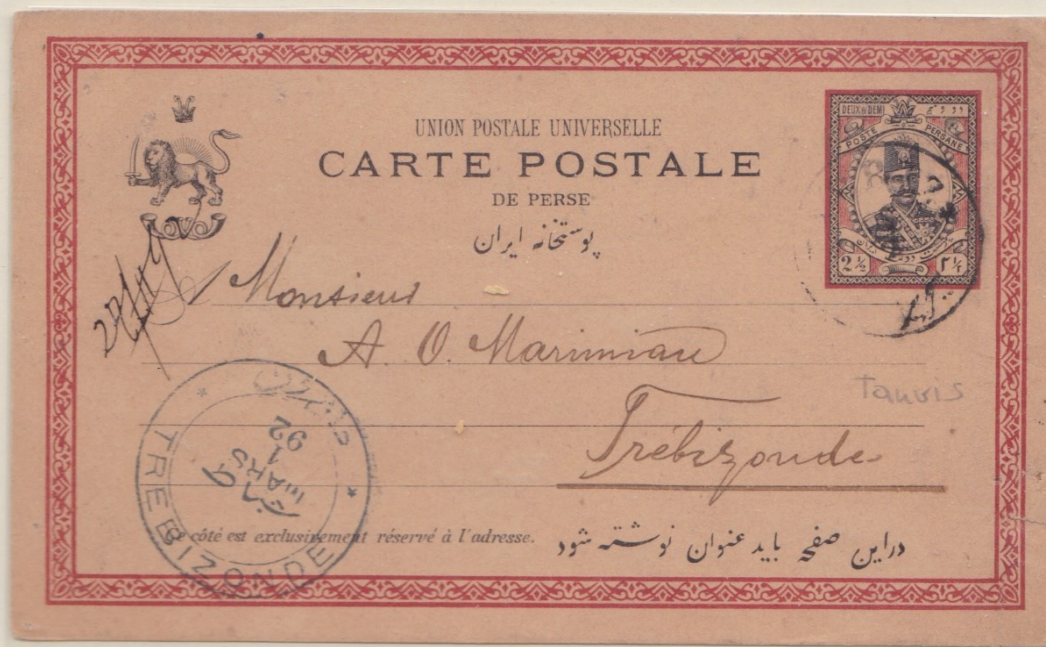 UNION POSTALE UNIVERSELLE
CARTE POSTALE
DE PERSE
پوستخانه ایران
DEUX & DEMI
POSTE PERSANE
2 ½
۲ ½
Monsieur
A. O. Marimian
Tauris
Trébizonde
TREBIZONDE
1
MARS
92
Ce côté est exclusivement réservé à l'adresse.
دراین صفحه باید عنوان نوشته شود